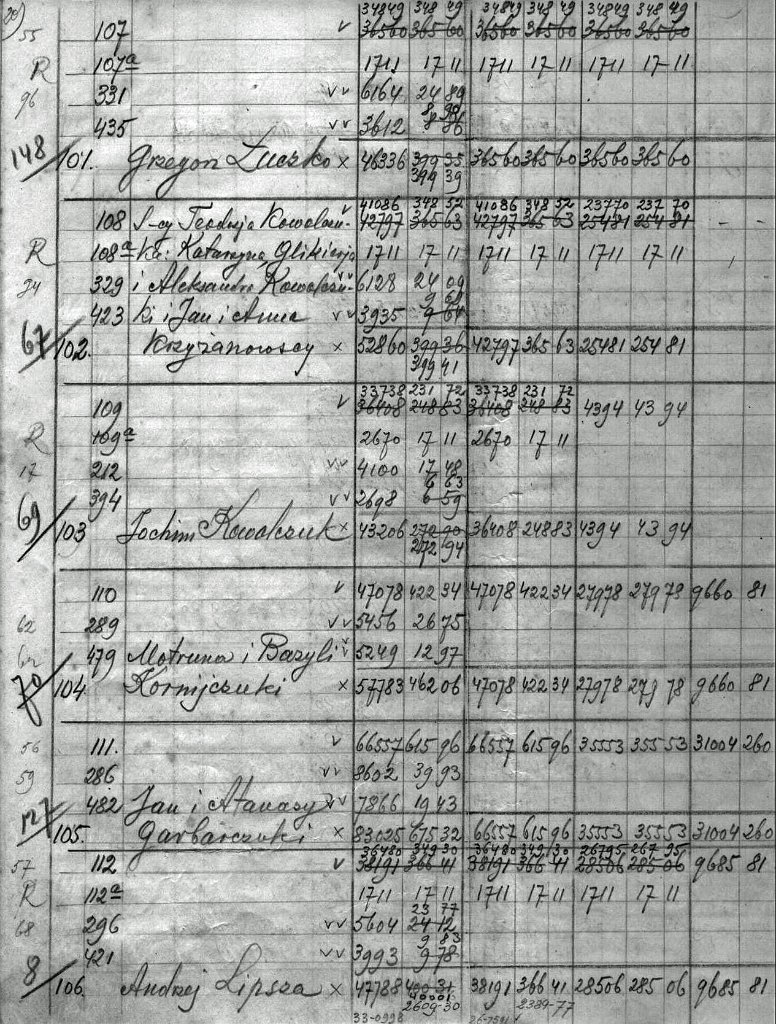 34849 348 49 34849 348 49 34849 348 49
55 107 v 36560 365 60 36560 365 60 36560 365 60
R 107a 1711 17 11 1711 17 11 1711 17 11
96 331 vv 6164 24 89
8 90
435 vv 3612 8 86
148/101. Grzegorz Łuczko x 46336 399 35 36560 365 60 36560 365 60
399 39
41086 348 52 41086 348 52 23770 237 70
108 S-cy Teodozja Kowalczu- v 42797 365 63 42797 365 63 25481 254 81 - -
R 108a ka: Katarzyna Glikierja 1711 17 11 1711 17 11 1711 17 11
329 i Aleksandra Kowalczu- vv 6128 24 09
423 ki i Jan i Anna vv 3935 9 64
67/102. Krzyżanowscy x 52860 399 36 42797 365 63 25481 254 81
399 41
33738 231 72 33738 231 72
109 v 36408 248 83 36408 248 83 4394 43 94
R 109a 2670 17 11 2670 17 11
17 212 vv 4100 17 48
6 63
394 vv 2698 6 59
69/103 Jochim Kowalczuk x 43206 272 90 36408 248 83 4394 43 94
272 94
110 v 47078 422 34 47078 422 34 27978 279 78 9660 81
62 289 vv 5456 26 75
479 Motruna i Bazyli v 5249 12 97
70/104. Kornijczuki x 57783 462 06 47078 422 34 27978 279 78 9660 81
56 111. v 66557 615 96 66557 615 96 35553 355 53 31004 260
59 286 vv 8602 39 93
482 Jan i Atanazy vv 7866 19 43
127/105. Garbarczuki x 83025 675 32 66557 615 96 35553 355 53 31004 260
36480 349 30 36480 349 30 26795 267 95
57 112 v 38191 366 41 38191 366 41 28506 285 06 9685 81
R 112a 1711 17 11 1711 17 11 1711 17 11
23 77
68 296 vv 5604 24 12
9 83
421 vv 3993 9 78
8/106. Andrzej Lipsza x 47788 400 31 38191 366 41 28506 285 06 9685 81
400 01
2609-30 2389-77